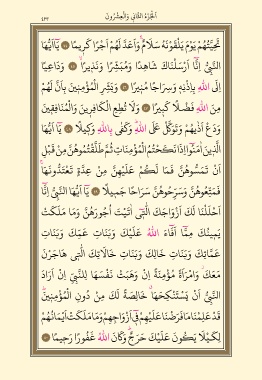 الجزء الثاني والعشرون ٤٢٣
تحيتهم يوم يلقونه سلام واعد لهم اجرا كريما ﴿٤٤﴾ يآ ايها
النبي انا ارسلناك شاهدا ومبشرا ونذيرا ﴿٤٥﴾ وداعيا
الى الله باذنه وسراجا منيرا ﴿٤٦﴾ وبشر المؤمنين بان لهم
من الله فضلا كبيرا ﴿٤٧﴾ ولا تطع الكافرين والمنافقين
ودع اذيهم وتوكل على الله وكفى بالله وكيلا ﴿٤٨﴾ يآ ايها
الذين امنوا اذا نكحتم المؤمنات ثم طلقتموهن من قبل
ان تمسوهن فما لكم عليهن من عدة تعتدونها
فمتعوهن وسرحوهن سراحا جميلا ﴿٤٩﴾ يآ ايها النبي انا
احللنا لك ازواجك التي اتيت اجورهن وما ملكت
يمينك مما افاء الله عليك وبنات عمك وبنات
عماتك وبنات خالك وبنات خالاتك التي هاجرن
معك وامراة مؤمنة ان وهبت نفسها للنبي ان اراد
النبي ان يستنكحها خالصة لك من دون المؤمنين
قد علمنا ما فرضنا عليهم في ازواجهم وما ملكت ايمانهم
لكيلا يكون عليك حرج وكان الله غفورا رحيما ﴿٥٠﴾